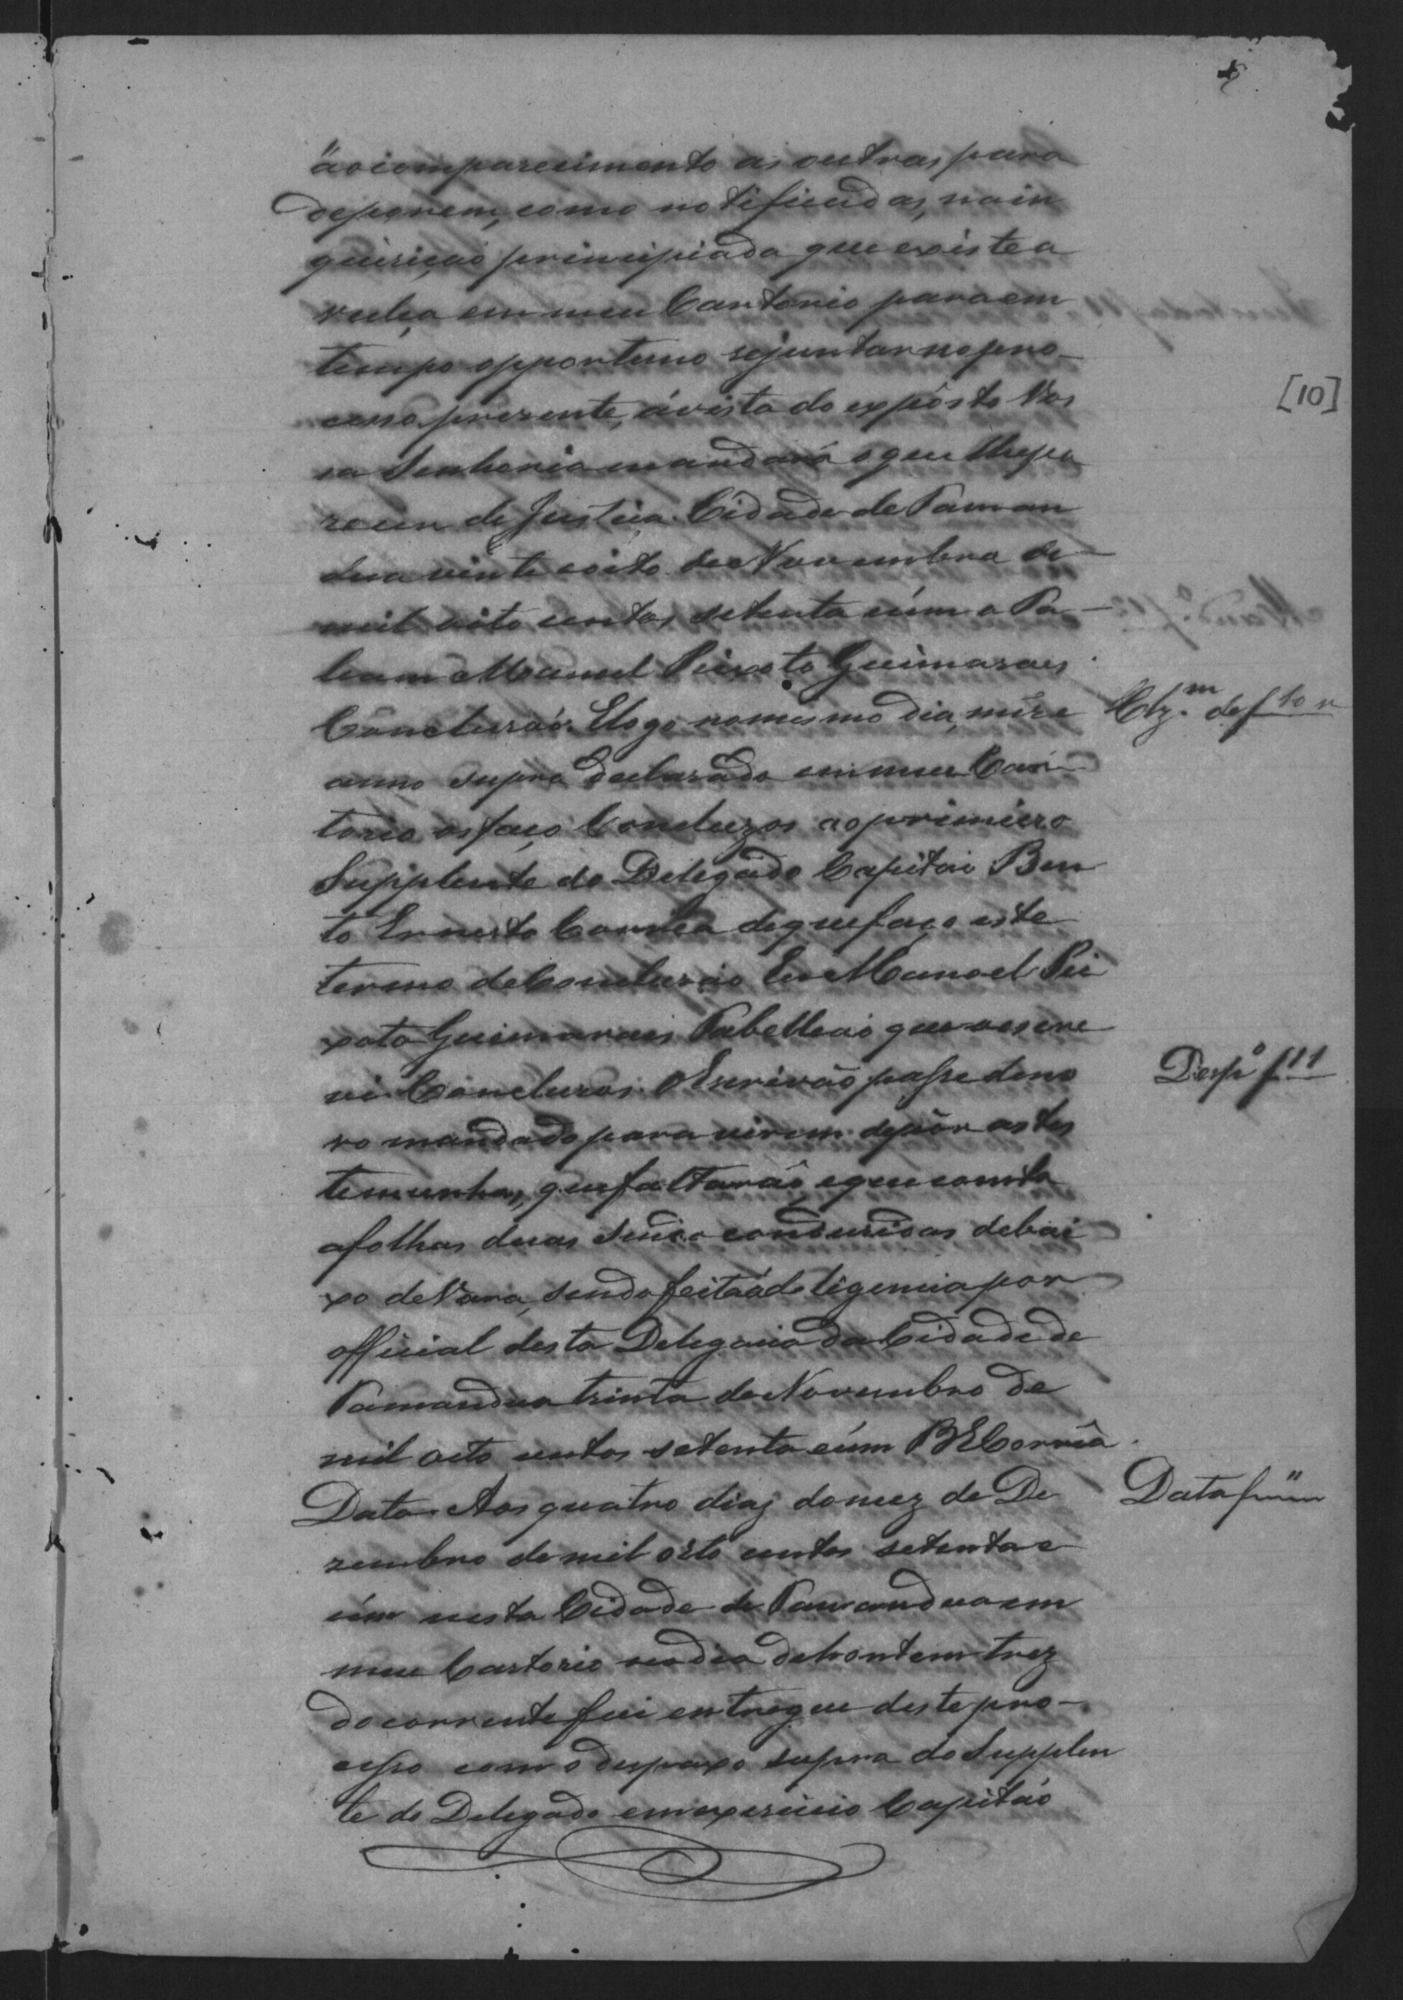 ão comparecimento as outras para
deporem, como notificadas, na in
quirição principiada que existe a
vulsa em meu Cartorio para em
tempo opportuno se juntar no pro-
cesso presente, á vista do expôsto Vos
sa Senhoria mandará o que lhe pa
recer de Justiça. Cidade de Taman
dua vinte e oito de Novembro de
mil oito centos setenta e úm o Ta-
beam Manuel Peixoto Guimaraes
Conclusaõ. E logo no mesmo dia, mêz e
anno supra declarado em meu Car
torio os faço Concluzos ao primeiro
Supplente do Delegado Capitaõ Ben
to Ernesto Corrêa de que faço este
termo de Conclusaõ Eu Manoel Pei
xoto Guimaraes Tabelleaõ que o escre
vi. Concluzos. O Escrivaõ passe de no
vo mandado para virem depôr as tes
temunhas, que faltaraõ, e que consta
a folhas duas sendo conduzidas debai
xo de Vara, sendo feita a deligencia por
official desta Delegacia da Cidade de
Tamandua trinta de Novembro de
mil oito centos setenta e úm B E Corrêa.
Data. Aos quatro dias do mez de De
zembro de mil oito centos setenta e
úm nesta Cidade de Tamandua em
meu Cartorio no dia de hontem trez
do corrente fui entregue deste pro-
cesso com o despaxo supra do Supplen
te do Delegado em exercicio Capitaõ
[10]
Clz.m de f 10 v
Desp.o f 11
Data f 11